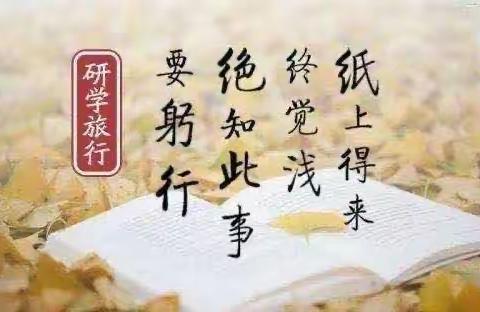 纸上得来
终觉浅
绝知此事
要躬行
研学旅行